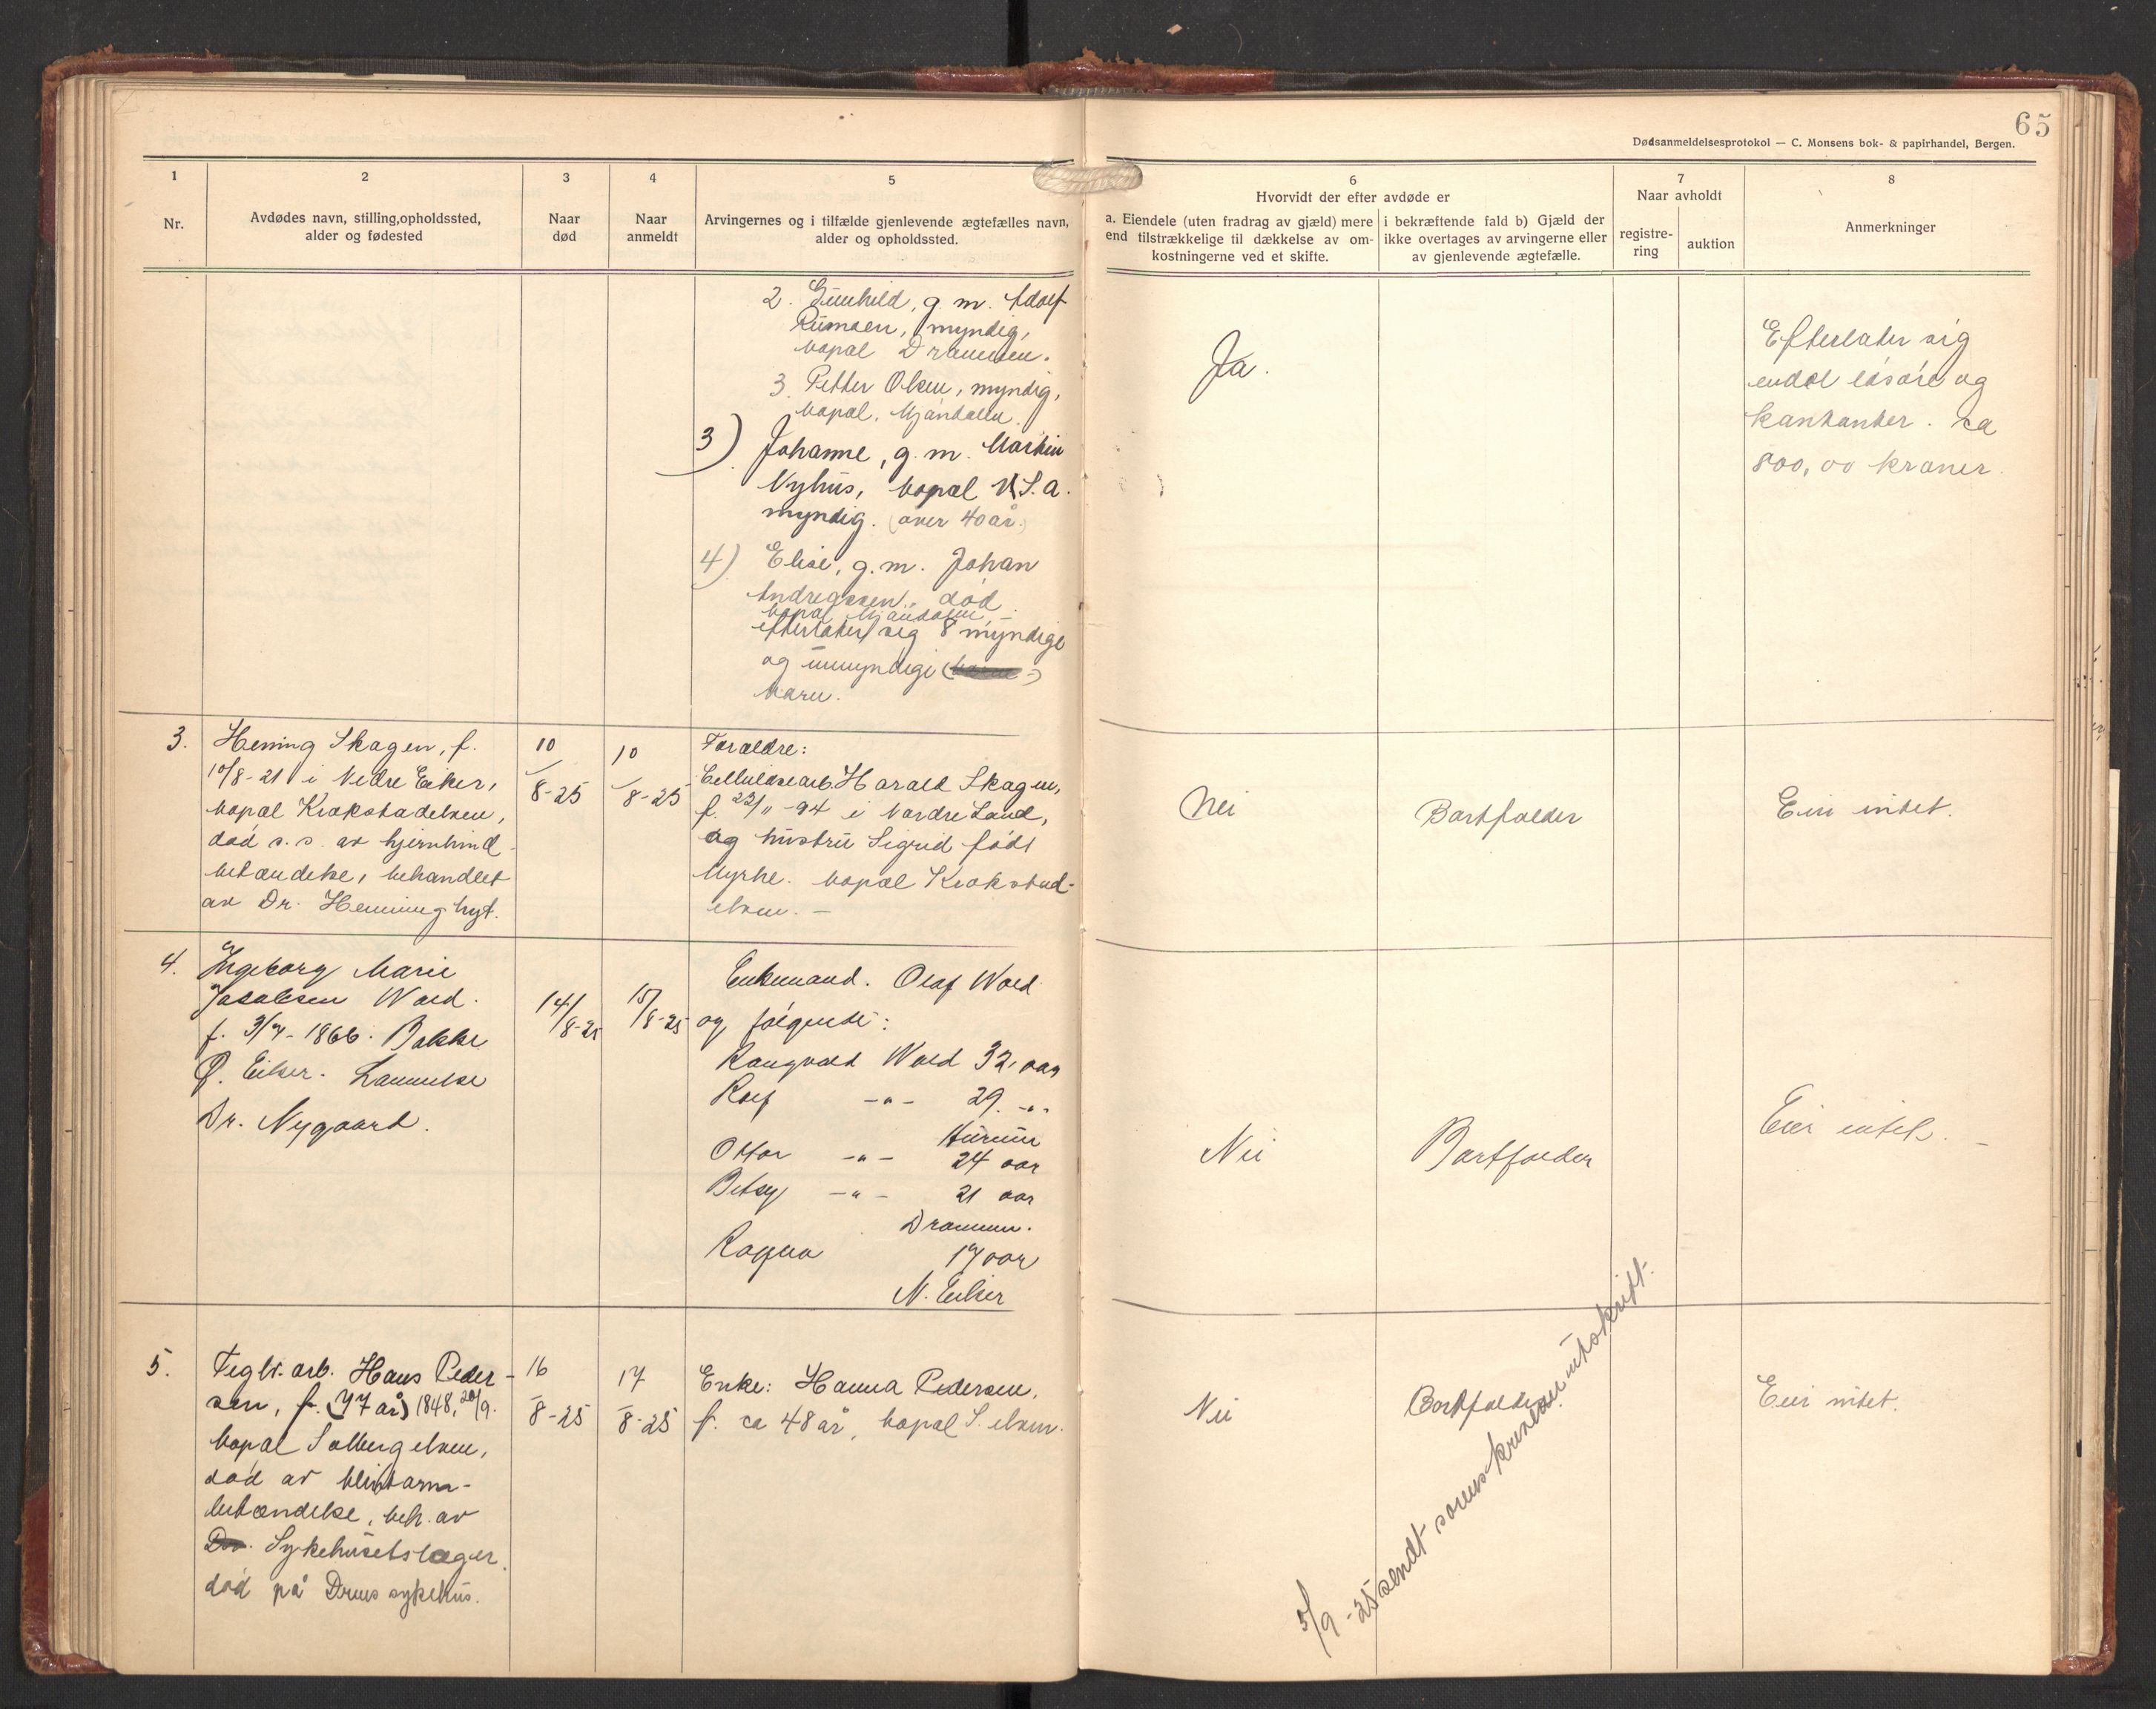 65
Dødsanmeldelsesprotokol — C. Monsens bok- & papirhandel, Bergen.
1
Nr.
2
Avdødes navn, stilling, opholdssted,
alder og fødested
3
Naar
død
4
Naar
anmeldt
5
Arvingernes og i tilfælde gjenlevende ægtefælles navn,
alder og opholdssted.
6
Hvorvidt der efter avdøde er
a. Eiendele (uten fradrag av gjæld) mere
end tilstrækkelige til dækkelse av om-
kostningerne ved et skifte.
i bekræftende fald b) Gjæld der
ikke overtages av arvingerne eller
av gjenlevende ægtefælle.
7
Naar avholdt
registre-
ring
auktion
8
Anmerkninger
2. Gunhild, g. m. Adolf
myndig,
bopæl Drammen.
3. Petter Olsen, myndig,
bopæl, Mjøndalen.
3) Johanne, g. m. Martin
Nyhus, bopæl U.S.A.
myndig. (over 40 år.)
4) Elise, g. m. Johan
Andreassen, død
bopæl Mjøndalen, -
efterlater sig 8 myndige
og umyndige
barn.
Ja.
Efterlater sig
endel løsøre og
kontanter. ca
800,00 kroner.
3. Henning Skagen, f.
10/8-21 i Nedre Eiker,
bopæl Krokstadelven,
død s. s. av hjernehind
betændelse, behandlet
av Dr. Henning Nyt.
10/8-25
10/8-25
Forældre:
Cellulosearb. Harald Skagen,
f. 22/11-94 i Nordre Land,
og hustru Sigrid født
Myrhe. bopæl Krokstad-
elven. -
Nei
Bortfalder
Eier intet.
4. Ingeborg Marie
Jakobsen Wold.
f. 3/7-1866. Bakke
Ø. Eiker. Lammelse
Dr. Nygaard.
14/8-25
15/8-25
Enkemand. Olaf Wold
og følgende:
Rangvald Wold 32. aar
Rolf -"- 29. -"-
Hurum
Ottar -"- 24 aar
Betsy -"- 21 aar
Drammen.
Ragna 17 aar
N. Eiker
Nei
Bortfalder
Eier intet. -
5. Teglv. arb. Hans Peder-
sen, f. (77 år) 1848, 20/9.
bopæl Solbergelven,
død av blindtarm-
betændelse, beh. av
Sykehusets læger.
død på Drms sykehus.
16/8-25
17/8-25
Enke: Hanna Pedersen,
f. ca 48 år, bopæl S. elven.
Nei
Bortfalder.
Eier intet.
5/9-25 sendt sorenskriveren utskrift.